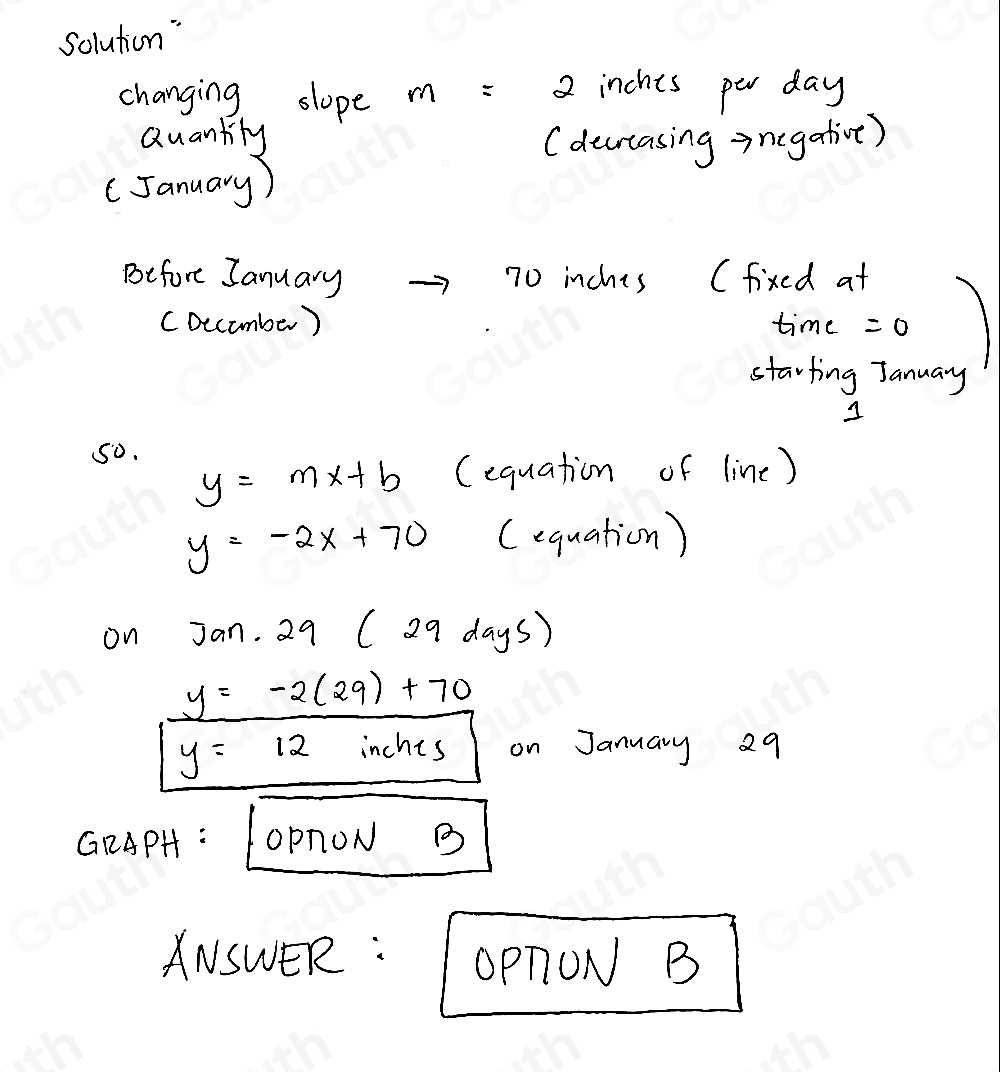 Solution:
changing slope m = 2 inches per day
Quantity (decreasing → negative)
(January)
Before January → 70 inches (fixed at
(December) time = 0
starting January
1)
so.
y = mx+b (equation of line)
y = -2x + 70 (equation)
on Jan. 29 (29 days)
y = -2(29) + 70
y = 12 inches on January 29
GRAPH: OPTION B
ANSWER: OPTION B